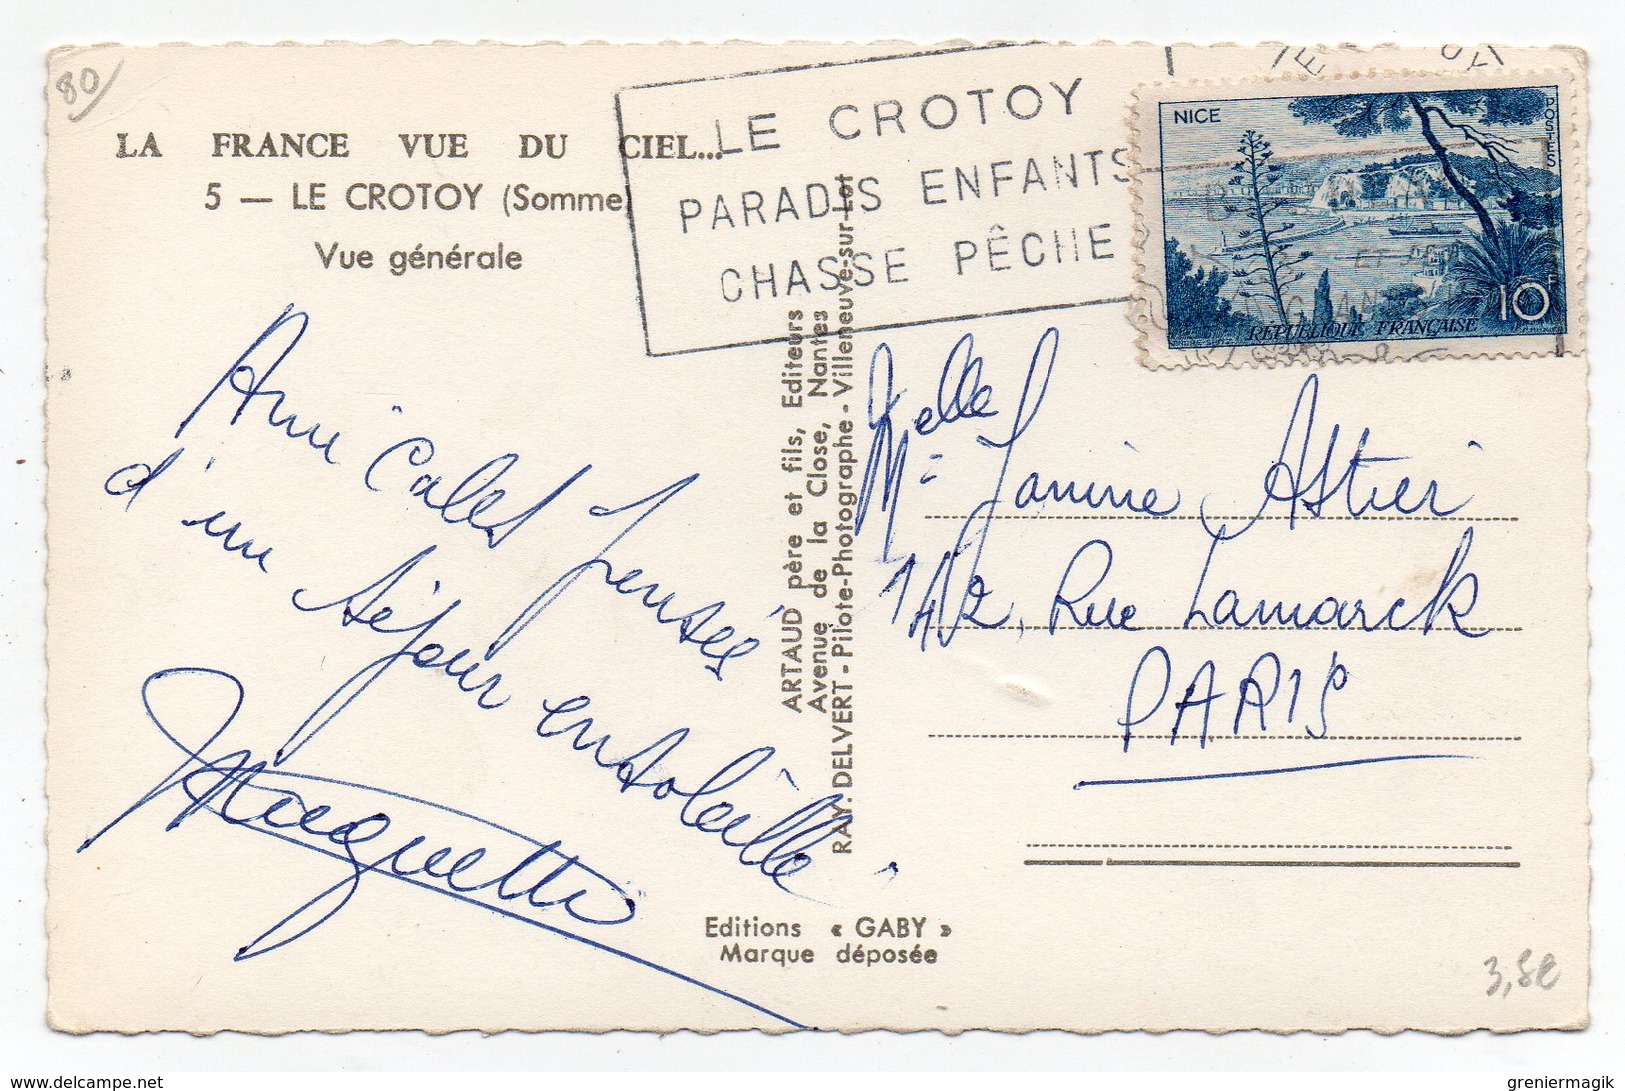 80
LA FRANCE VUE DU CIEL...
5 — LE CROTOY (Somme)
Vue générale
LE CROTOY
PARADIS ENFANTS
CHASSE PÊCHE
NICE
POSTES
10F
REPUBLIQUE FRANÇAISE
Amicales pensées
d'un séjour ensoleillé.
Huguette
ARTAUD père et fils, Editeurs
Avenue de la Close, Nantes
RAY. DELVERT - Pilote-Photographe - Villeneuve-sur-Lot
Melle Janine Astier
142, Rue Lamarck
PARIS
Editions « GABY »
Marque déposée
3,8€
www.delcampe.net
greniermagik